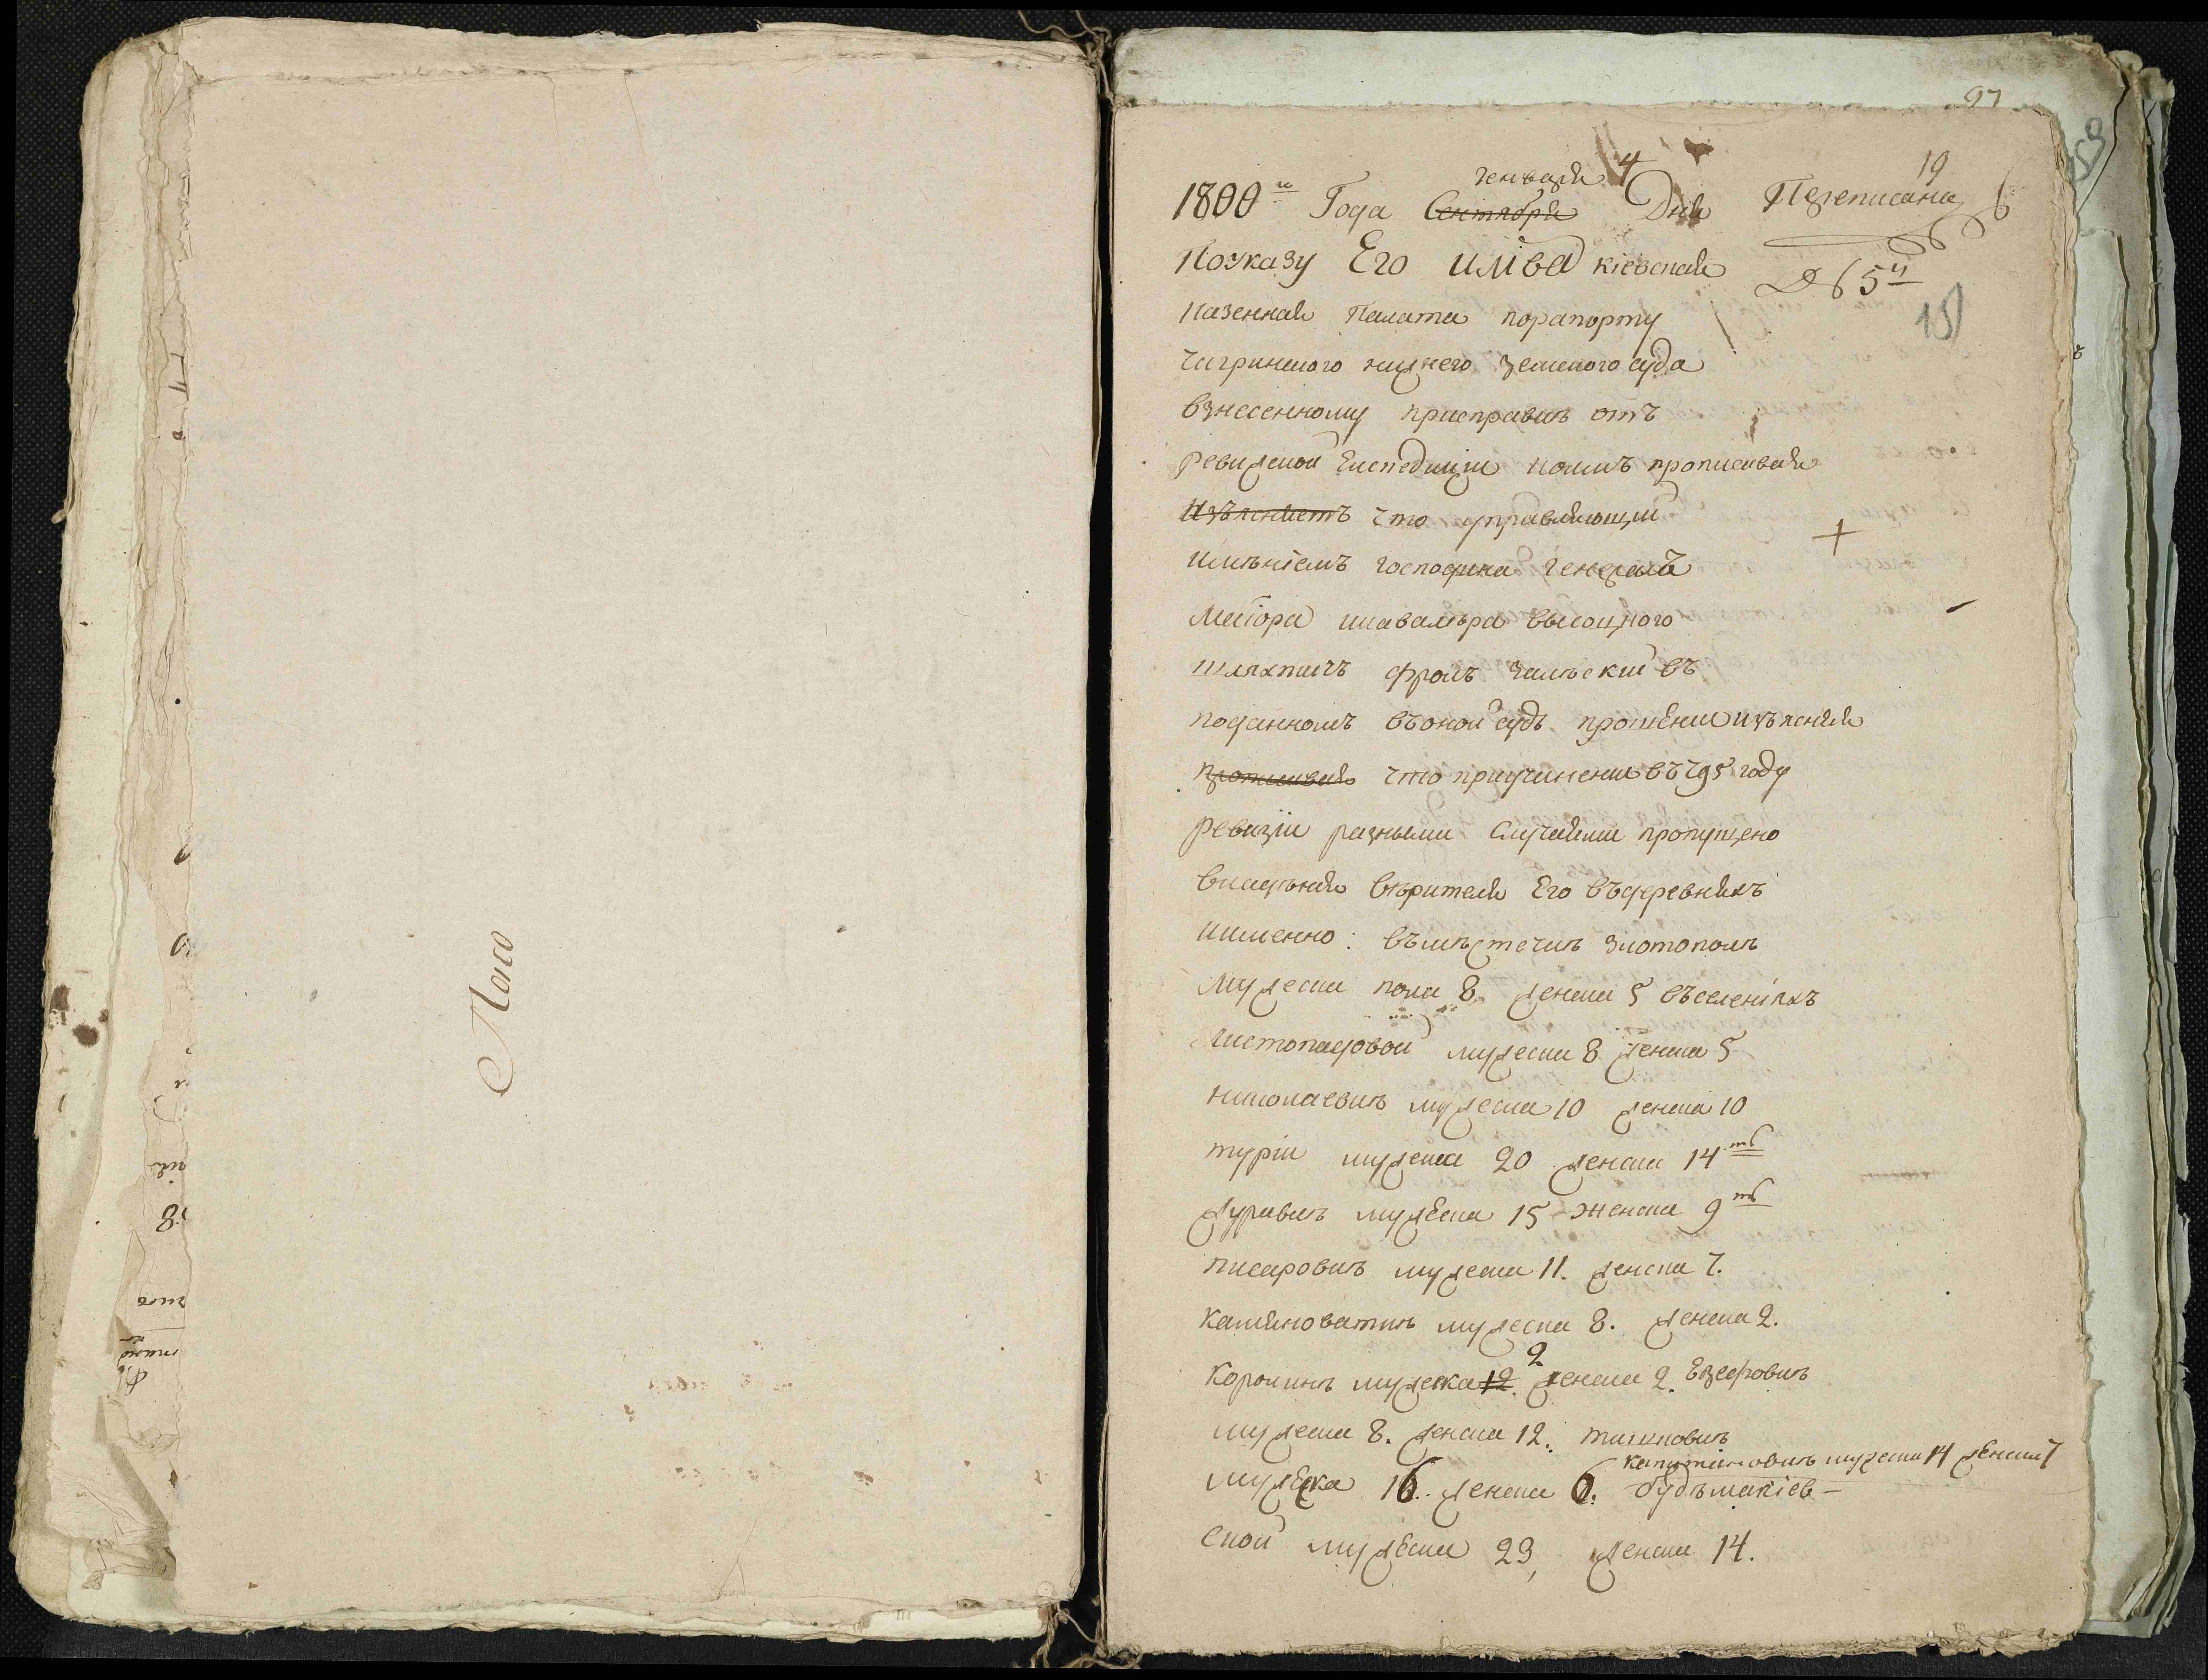 97
19
генваря 4
1800го Года Сентября Дня
Переписана
Поуказу Его ИМПВА кіевская
№ 65й
19
казенная Палата порапорту
чигринского нижнего земского суда
взнесенному присправкѣ отъ
ревижской Експедиціи коимъ прописывая
Изъясняетъ что управляющій
имѣніемъ господина генералъ
Маіора икавалѣра высоцкого
шляхтичъ фролъ залѣскій въ
поданномъ въоной судъ прошеніи изъясняя
прописывая что приучиненіи въ 795 году
ревизіи разными Случаями пропущено
владѣнія вѣрителя Его въдеревняхъ
имменно: въмѣстечкѣ Златополѣ
мужеска пола 8. женска 5 въселеніяхъ
Листопадовой мужеска 8 женска 5
николаевкѣ мужеска 10 женска 10
туріи мужеска 20 женска 14ть
Журавкѣ мужеска 15 женска 9ть
писаровкѣ мужеска 11. женска 7.
каменоваткѣ мужеска 8. женска 2.
2
Коромикѣ мужеска 12. женска 2. Юзефовкѣ
мужеска 8. женска 12. тишковкѣ
капитановкѣ мужеска 14 женска 7
мужеска 16. женска 6. будъмакіев-
ской мужеска 23, женска 14.